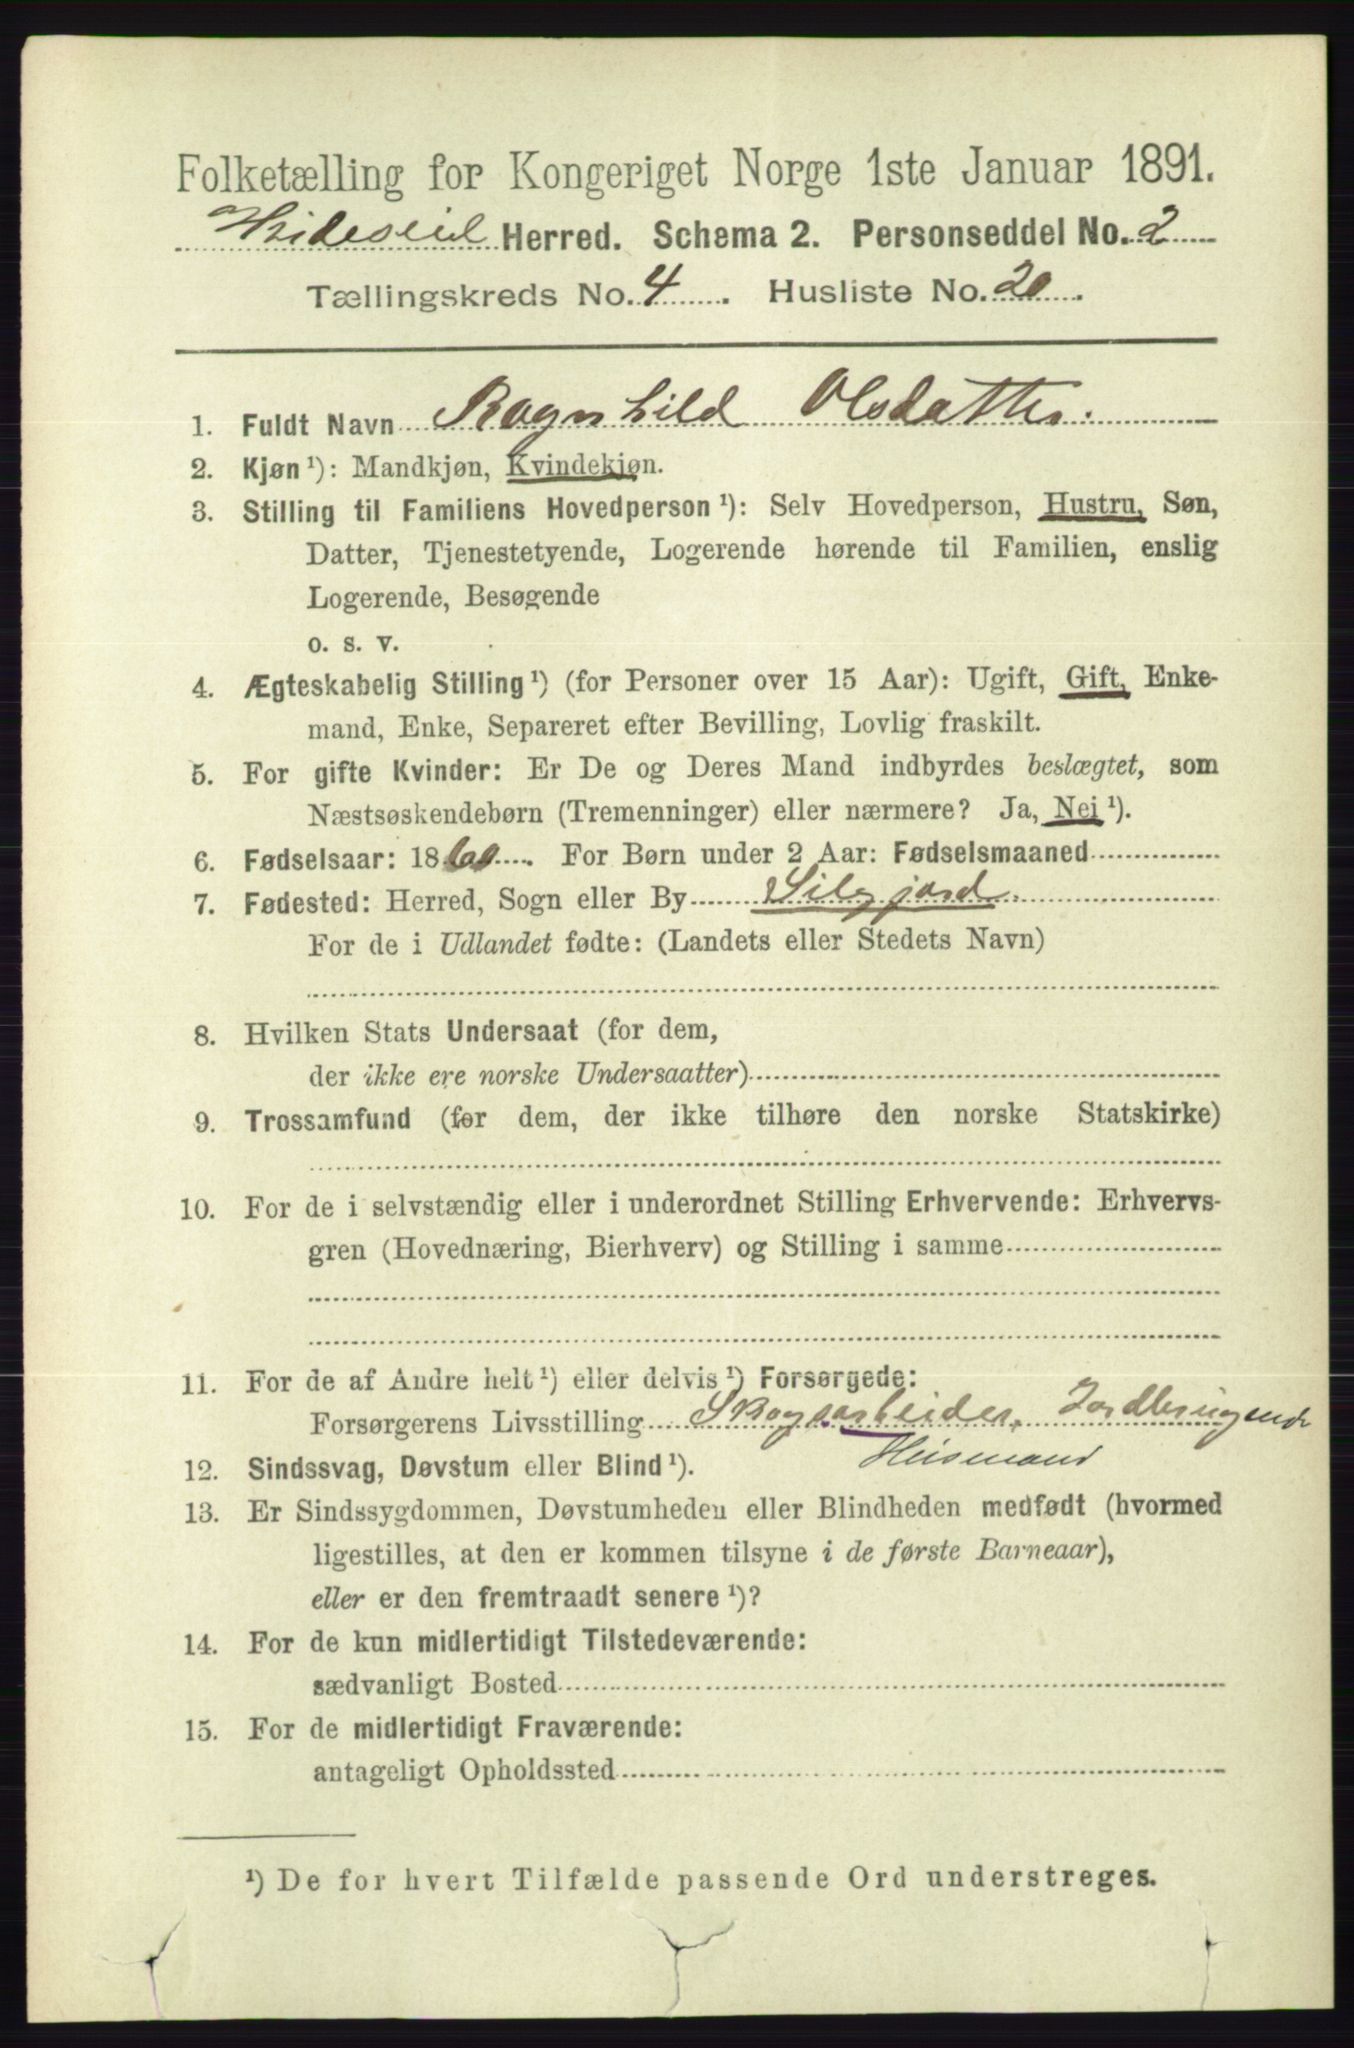 Folketælling for Kongeriget Norge 1ste Januar 1891.
Hvideseid Herred. Schema 2. Personseddel No. 2
Tællingskreds No. 4. Husliste No. 20.
1. Fuldt Navn Ragnhild Olsdatter.
2. Kjøn ¹): Mandkjøn, Kvindekjøn.
3. Stilling til Familiens Hovedperson ¹): Selv Hovedperson, Hustru, Søn,
Datter, Tjenestetyende, Logerende hørende til Familien, enslig
Logerende, Besøgende
o. s. v.
4. Ægteskabelig Stilling ¹) (for Personer over 15 Aar): Ugift, Gift, Enke-
mand, Enke, Separeret efter Bevilling, Lovlig fraskilt.
5. For gifte Kvinder: Er De og Deres Mand indbyrdes beslægtet, som
Næstsøskendebørn (Tremenninger) eller nærmere? Ja, Nei ¹).
6. Fødselsaar: 1860. For Børn under 2 Aar: Fødselsmaaned
7. Fødested: Herred, Sogn eller By Silgjord.
For de i Udlandet fødte: (Landets eller Stedets Navn)
8. Hvilken Stats Undersaat (for dem,
der ikke ere norske Undersaatter)
9. Trossamfund (for dem, der ikke tilhøre den norske Statskirke)
10. For de i selvstændig eller i underordnet Stilling Erhvervende: Erhvervs-
gren (Hovednæring, Bierhverv) og Stilling i samme
11. For de af Andre helt ¹) eller delvis ¹) Forsørgede:
Forsørgerens Livsstilling Skogsarbeider, Jordbrugende
Husmand
12. Sindssvag, Døvstum eller Blind ¹).
13. Er Sindssygdommen, Døvstumheden eller Blindheden medfødt (hvormed
ligestilles, at den er kommen tilsyne i de første Barneaar),
eller er den fremtraadt senere ¹)?
14. For de kun midlertidigt Tilstedeværende:
sædvanligt Bosted
15. For de midlertidigt Fraværende:
antageligt Opholdssted
¹) De for hvert Tilfælde passende Ord understreges.